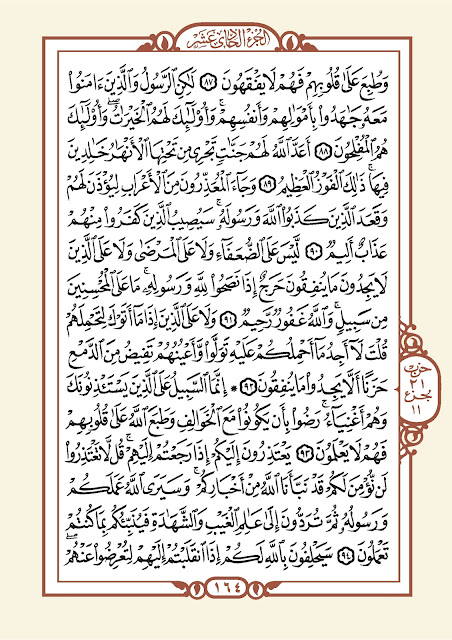 الجزء الحادي عشر
وَطُبِعَ عَلَىٰ قُلُوبِهِمْ فَهُمْ لَا يَفْقَهُونَ ٨٧ لَٰكِنِ ٱلرَّسُولُ وَٱلَّذِينَ ءَامَنُوا۟
مَعَهُۥ جَٰهَدُوا۟ بِأَمْوَٰلِهِمْ وَأَنفُسِهِمْ ۚ وَأُو۟لَٰٓئِكَ لَهُمُ ٱلْخَيْرَٰتُ ۖ وَأُو۟لَٰٓئِكَ
هُمُ ٱلْمُفْلِحُونَ ٨٨ أَعَدَّ ٱللَّهُ لَهُمْ جَنَّٰتٍ تَجْرِى مِن تَحْتِهَا ٱلْأَنْهَٰرُ خَٰلِدِينَ
فِيهَا ۚ ذَٰلِكَ ٱلْفَوْزُ ٱلْعَظِيمُ ٨٩ وَجَآءَ ٱلْمُعَذِّرُونَ مِنَ ٱلْأَعْرَابِ لِيُؤْذَنَ لَهُمْ
وَقَعَدَ ٱلَّذِينَ كَذَبُوا۟ ٱللَّهَ وَرَسُولَهُۥ ۚ سَيُصِيبُ ٱلَّذِينَ كَفَرُوا۟ مِنْهُمْ
عَذَابٌ أَلِيمٌ ٩٠ لَّيْسَ عَلَى ٱلضُّعَفَآءِ وَلَا عَلَى ٱلْمَرْضَىٰ وَلَا عَلَى ٱلَّذِينَ
لَا يَجِدُونَ مَا يُنفِقُونَ حَرَجٌ إِذَا نَصَحُوا۟ لِلَّهِ وَرَسُولِهِۦ ۚ مَا عَلَى ٱلْمُحْسِنِينَ
مِن سَبِيلٍ ۚ وَٱللَّهُ غَفُورٌ رَّحِيمٌ ٩١ وَلَا عَلَى ٱلَّذِينَ إِذَا مَآ أَتَوْكَ لِتَحْمِلَهُمْ
قُلْتَ لَآ أَجِدُ مَآ أَحْمِلُكُمْ عَلَيْهِ تَوَلَّوا۟ وَّأَعْيُنُهُمْ تَفِيضُ مِنَ ٱلدَّمْعِ
حَزَنًا أَلَّا يَجِدُوا۟ مَا يُنفِقُونَ ٩٢ ۞ إِنَّمَا ٱلسَّبِيلُ عَلَى ٱلَّذِينَ يَسْتَـْٔذِنُونَكَ
وَهُمْ أَغْنِيَآءُ ۚ رَضُوا۟ بِأَن يَكُونُوا۟ مَعَ ٱلْخَوَالِفِ وَطَبَعَ ٱللَّهُ عَلَىٰ قُلُوبِهِمْ
فَهُمْ لَا يَعْلَمُونَ ٩٣ يَعْتَذِرُونَ إِلَيْكُمْ إِذَا رَجَعْتُمْ إِلَيْهِمْ ۚ قُل لَّا تَعْتَذِرُوا۟
لَن نُّؤْمِنَ لَكُمْ قَدْ نَبَّأَنَا ٱللَّهُ مِنْ أَخْبَارِكُمْ ۚ وَسَيَرَى ٱللَّهُ عَمَلَكُمْ
وَرَسُولُهُۥ ثُمَّ تُرَدُّونَ إِلَىٰ عَٰلِمِ ٱلْغَيْبِ وَٱلشَّهَٰدَةِ فَيُنَبِّئُكُم بِمَا كُنتُمْ
تَعْمَلُونَ ٩٤ سَيَحْلِفُونَ بِٱللَّهِ لَكُمْ إِذَا ٱنقَلَبْتُمْ إِلَيْهِمْ لِتُعْرِضُوا۟ عَنْهُمْ ۖ
حزب
٢١
بجزء
١١
١٦٤